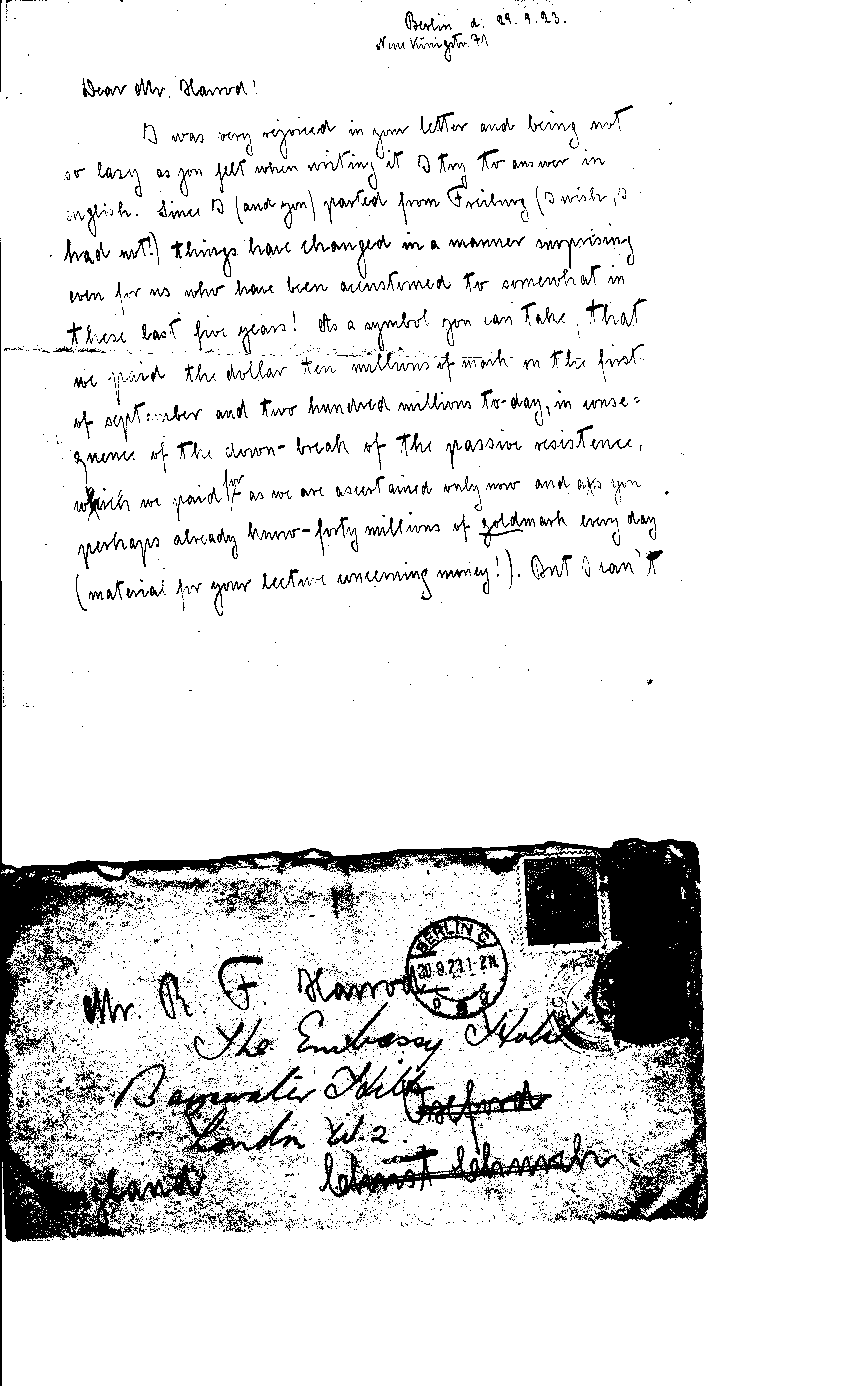 Berlin d. 29.9.23.
Neue Königstr. 71
Dear Mr. Harrod!
I was very rejoiced in your letter and being not
so lazy as you felt when writing it I try to answer in
english. Since I (and you) parted from Freiburg (I wish, I
had not!) things have changed in a manner surprising
even for us who have been accustomed to somewhat in
these last five years! As a symbol you can take, that
we paid the dollar ten millions of mark on the first
of september and two hundred millions to-day, in conse=
quence of the down-break of the passive resistence,
which we paid for as we are ascertained only now and as you
perhaps already know-forty millions of goldmark every day
(material for your lecture concerning money!). But I can't
BERLIN C
30.9.23.1-2N
Mr. R. F. Harrod
The Embassy Hotel
Bayswater Hill
Oxford
London W.2.
Christ Church.
England